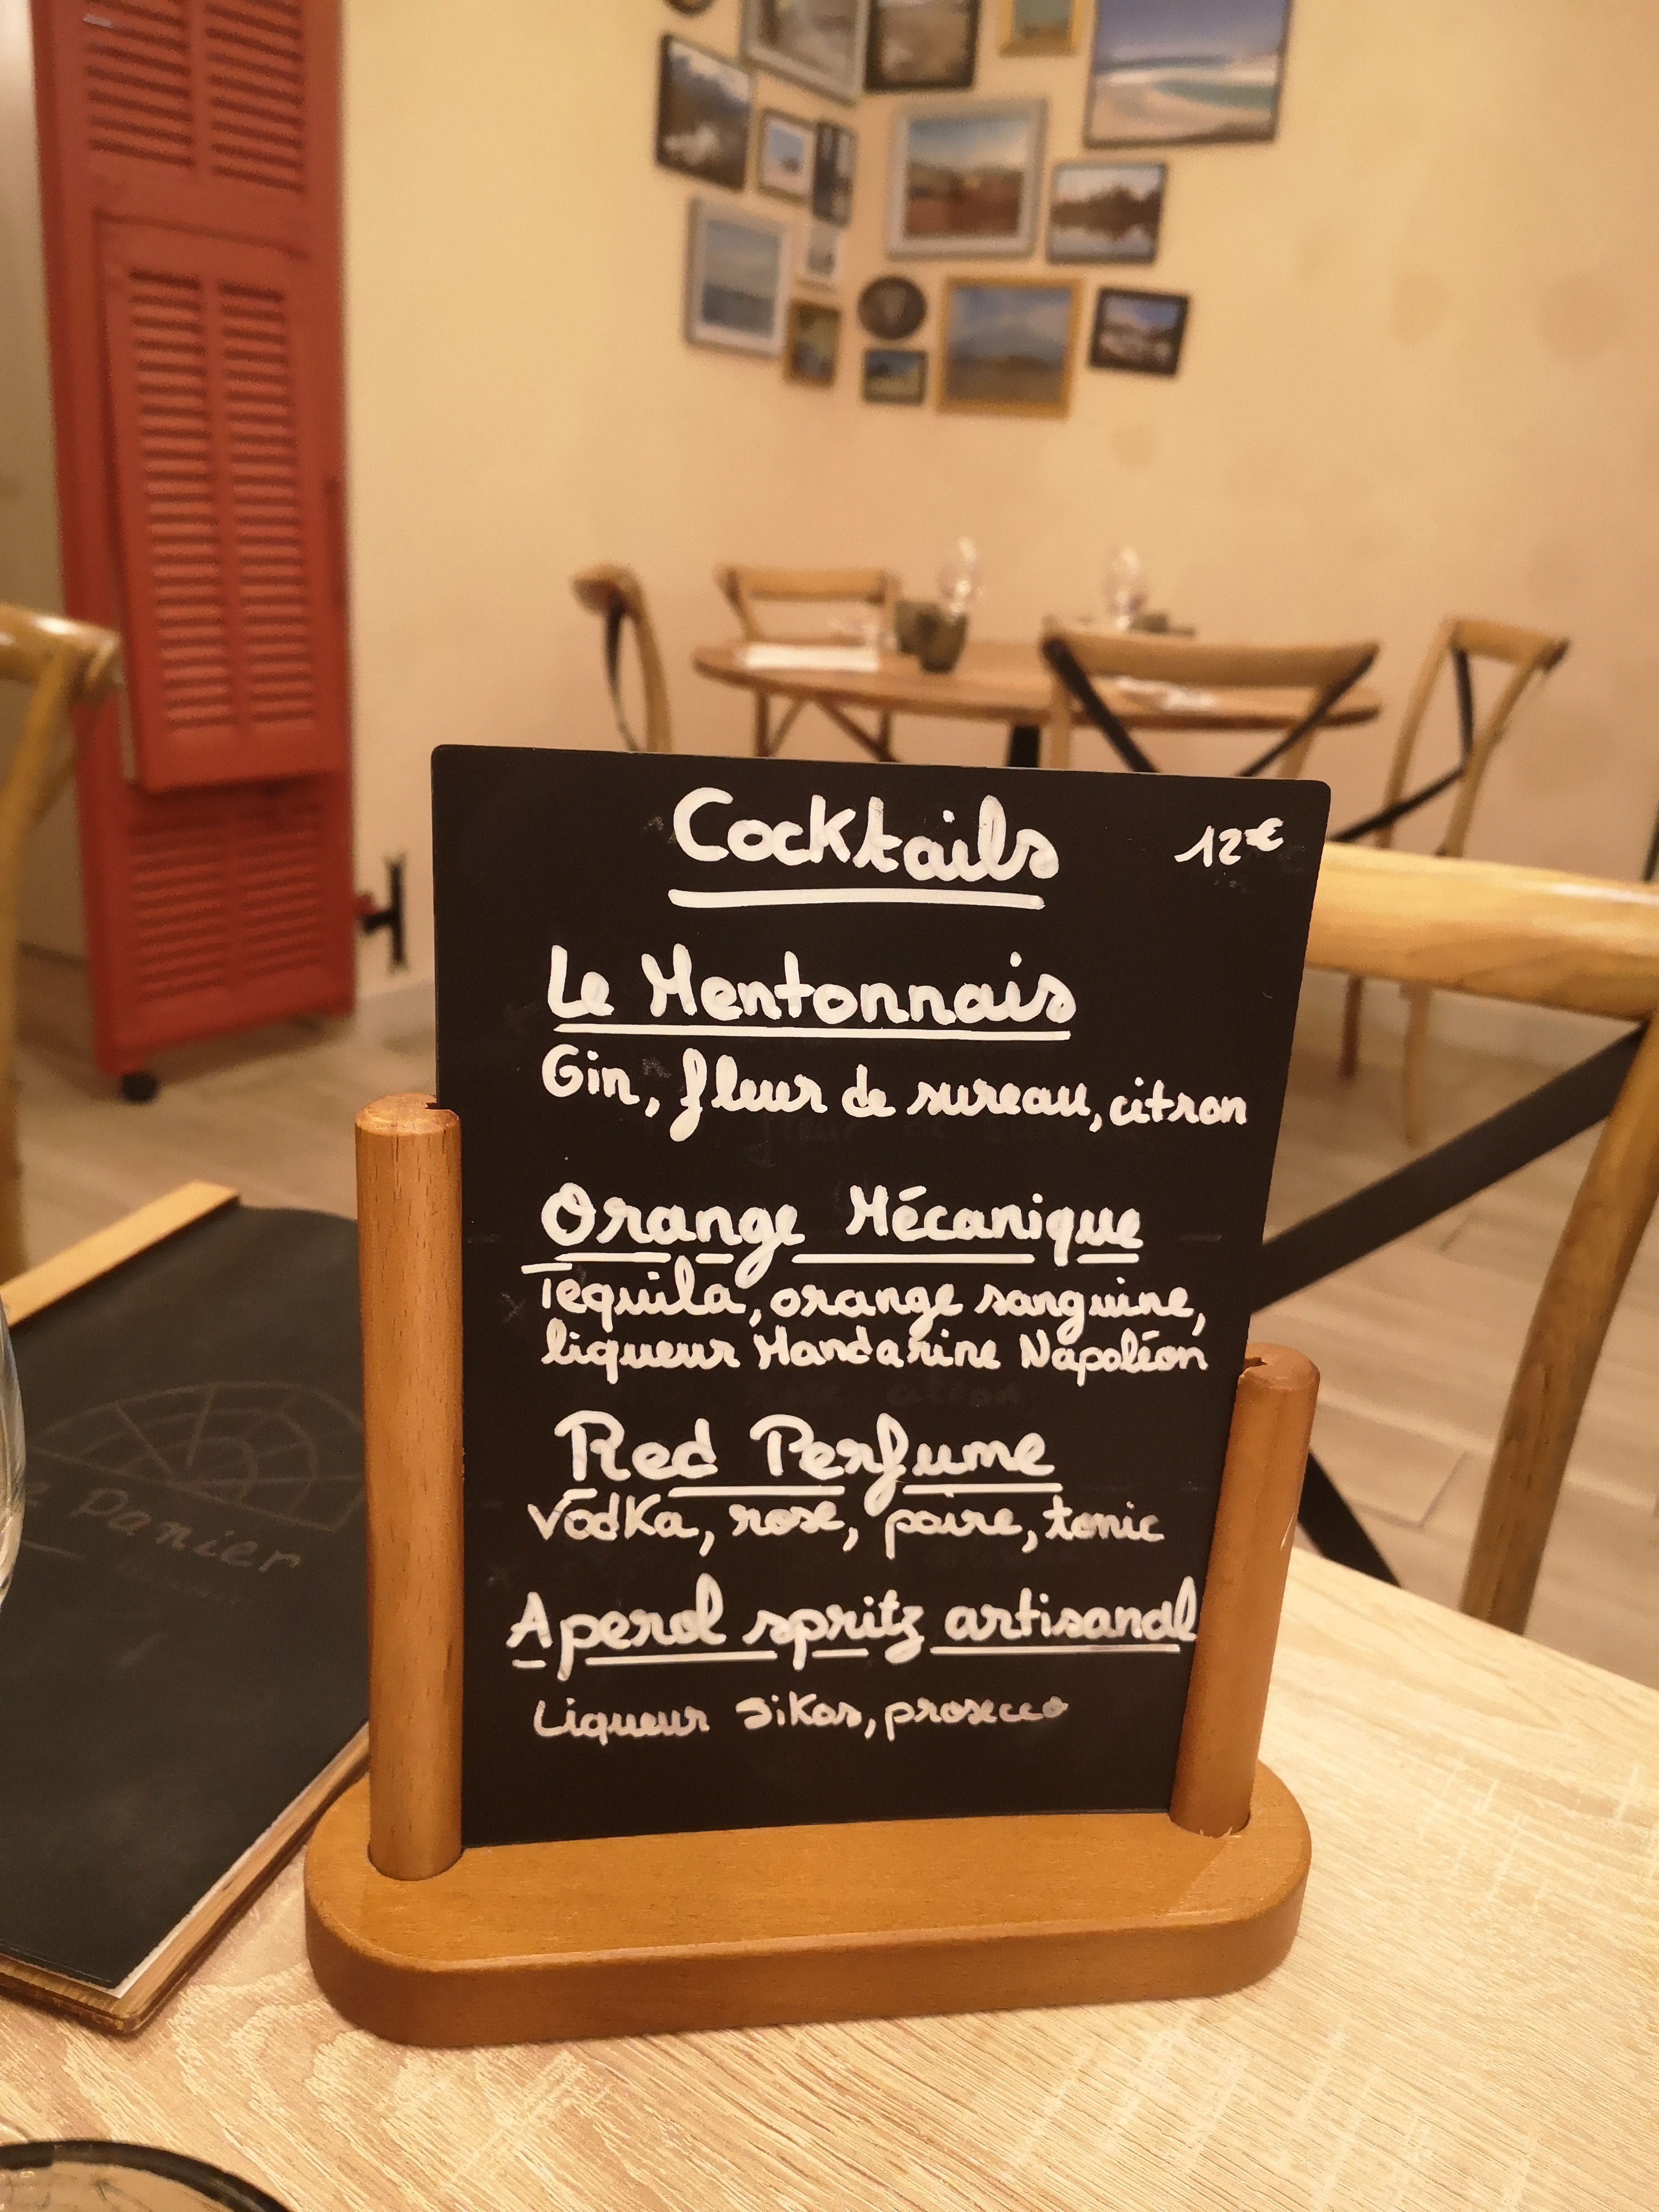 Cocktails 12€
Le Mentonnais
Gin, fleur de sureau, citron
Orange Mécanique
Tequila, orange sanguine,
liqueur Mandarine Napoléon
Red Perfume
Vodka, rose, poire, tonic
Aperol spritz artisanal
Liqueur Sikas, prosecco
Panier